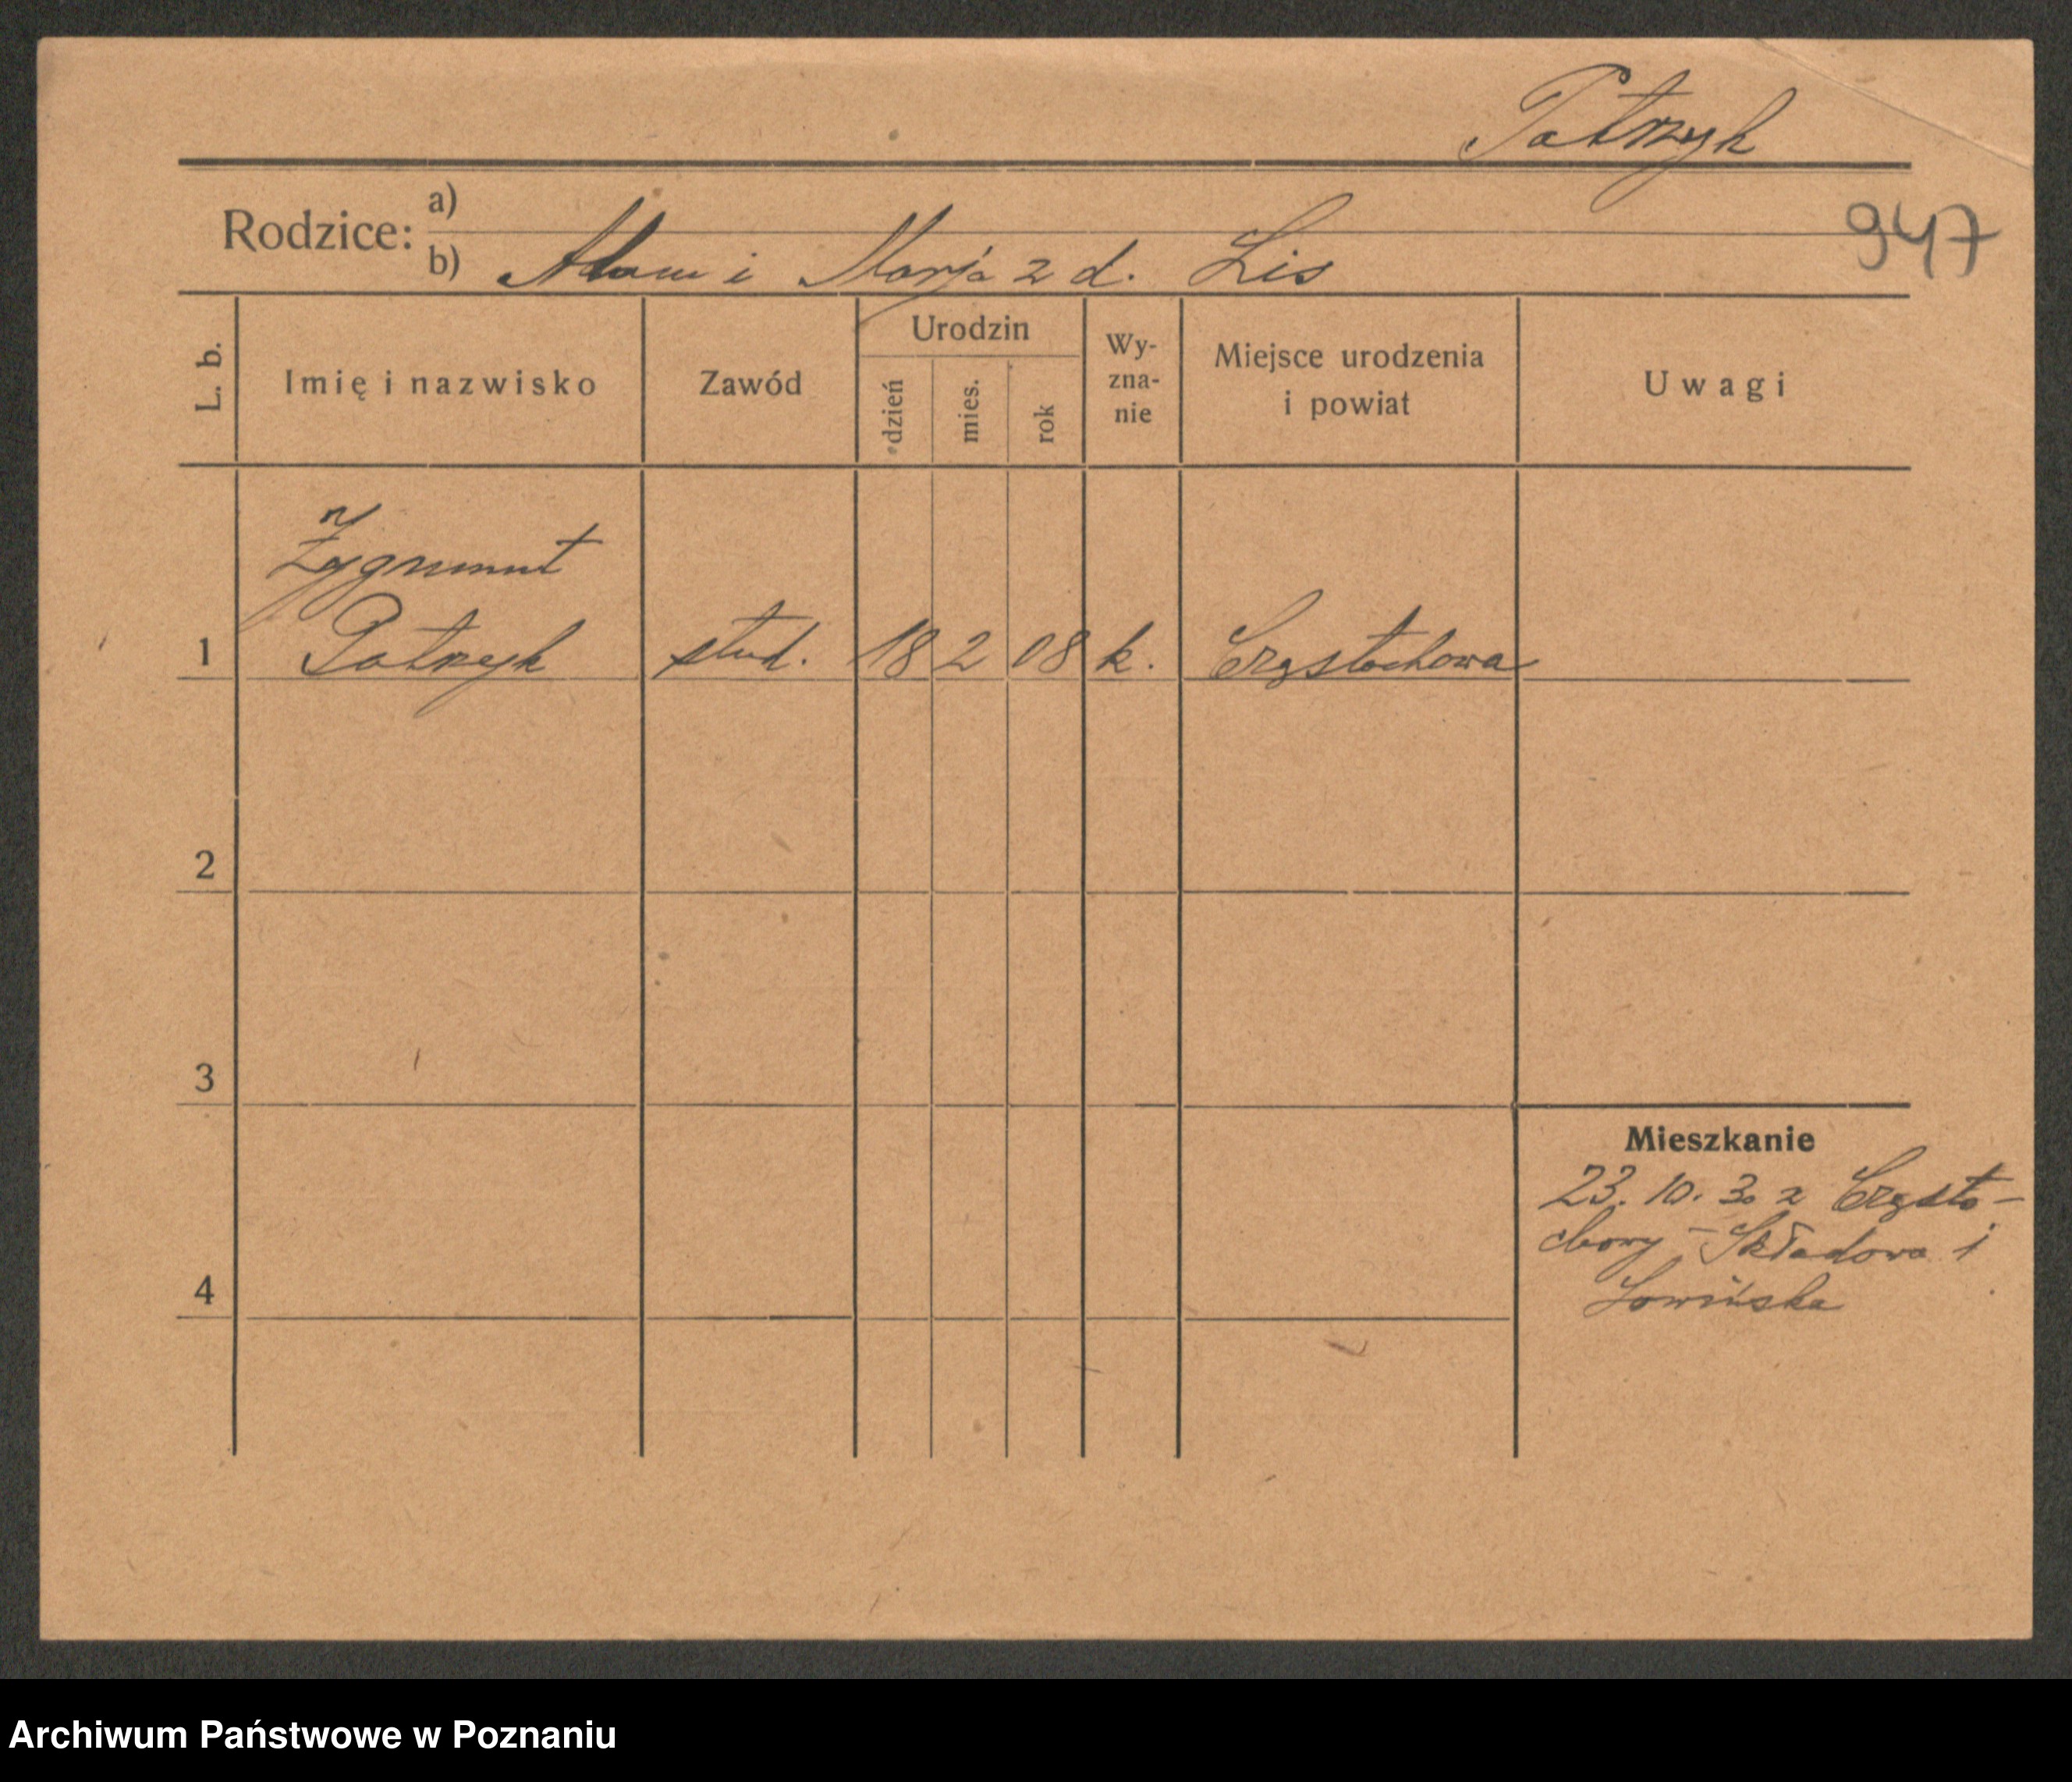 Patrzyk
947
Rodzice:
a)
b) Adam i Marja z d. Lis
L. b.
Imię i nazwisko
Zawód
Urodzin
dzień
mies.
rok
Wy-
zna-
nie
Miejsce urodzenia
i powiat
Uwagi
Zygmunt
1 Patrzyk stud. 18 2 08 k. Częstochowa
2
3
Mieszkanie
23. 10. 30 z Często-
chowy - Składowa 1
4
Łowińska
Archiwum Państwowe w Poznaniu